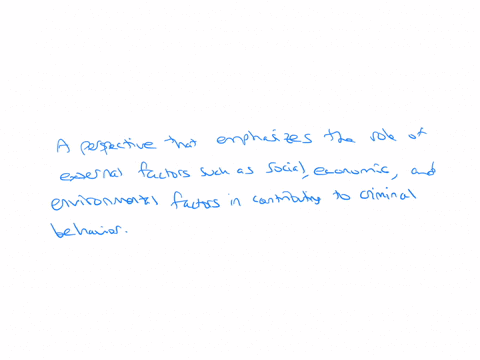 A perspective that emphasizes the role of
external factors such as social, economic, and
environmental factors in contributing to criminal
behavior.